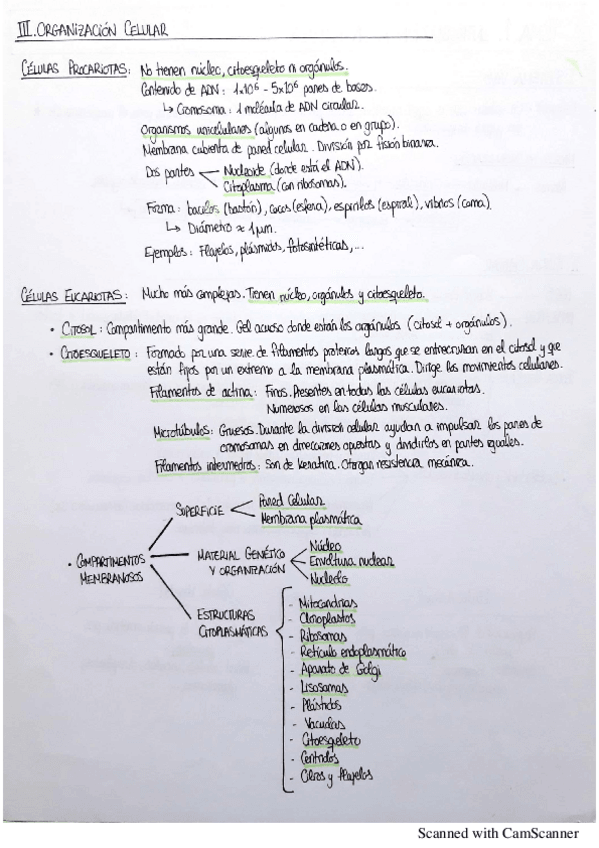 III. ORGANIZACIÓN CELULAR
CÉLULAS PROCARIOTAS: No tienen núcleo, citoesqueleto ni orgánulos.
Contenido de ADN: 1x10⁶ - 5x10⁶ pares de bases.
↳ Cromosoma: 1 molécula de ADN circular.
Organismos unicelulares (algunos en cadena o en grupo).
Membrana cubierta de pared celular. División por fisión binaria.
Dos partes
Nucleoide (donde está el ADN).
Citoplasma (con ribosomas).
Forma: bacilos (bastón), cocos (esfera), espirilos (espiral), vibrios (coma).
↳ Diámetro ≈ 1μm.
Ejemplos: Flagelos, plásmidos, fotosintéticas,...
CÉLULAS EUCARIOTAS: Mucho más complejas. Tienen núcleo, orgánulos y citoesqueleto.
• CITOSOL: Compartimento más grande. Gel acuoso donde están los orgánulos (citosol + orgánulos).
• CITOESQUELETO: Formado por una serie de filamentos proteicos largos que se entrecruzan en el citosol y que
están fijos por un extremo a la membrana plasmática. Dirige los movimientos celulares.
Filamentos de actina: Finos. Presentes en todas las células eucariotas.
Numerosos en las células musculares.
Microtúbulos: Gruesos. Durante la división celular ayudan a impulsar los pares de
cromosomas en direcciones opuestas y dividirlos en partes iguales.
Filamentos intermedios: Son de keratina. Otorgan resistencia mecánica.
• COMPARTIMENTOS
MEMBRANOSOS
SUPERFICIE
Pared Celular
Membrana plasmática
MATERIAL GENÉTICO
Y ORGANIZACIÓN
Núcleo
Envoltura nuclear
Nucleolo
ESTRUCTURAS
CITOPLASMÁTICAS
- Mitocondrias
- Cloroplastos
- Ribosomas
- Retículo endoplasmático
- Aparato de Golgi
- Lisosomas
- Plástidos
- Vacuolas
- Citoesqueleto
- Centriolos
- Cilios y flagelos
Scanned with CamScanner